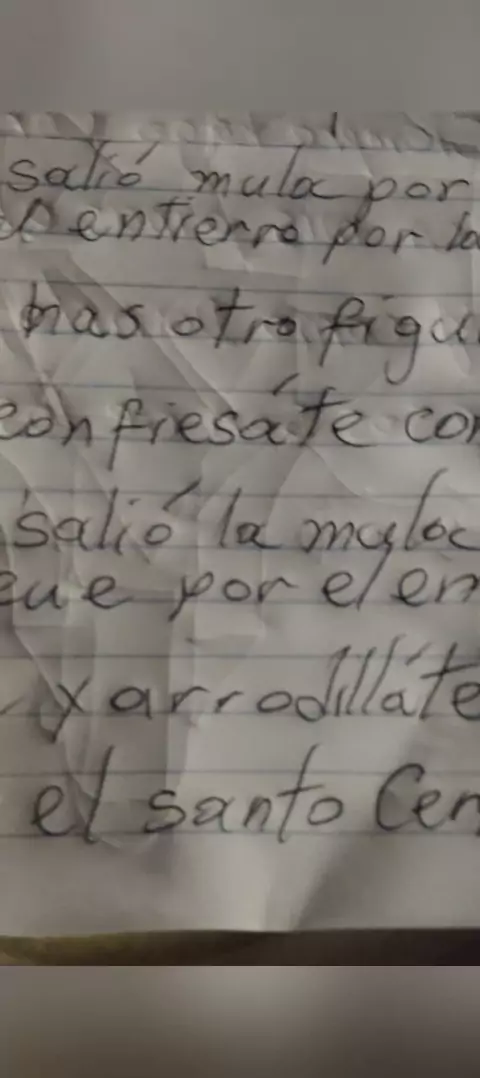 salió mula por
entierro por la
mas otra figu
confiesáte con
salió la mula
eue por el en
y arrodilláte
el santo Cen